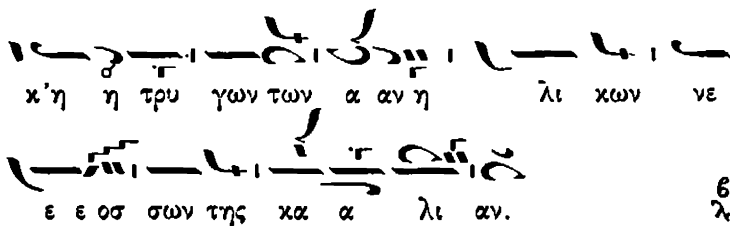 κ'η η τρυ γων των α αν η λι κων νε
ε ε οσ σων της κα α λι αν.